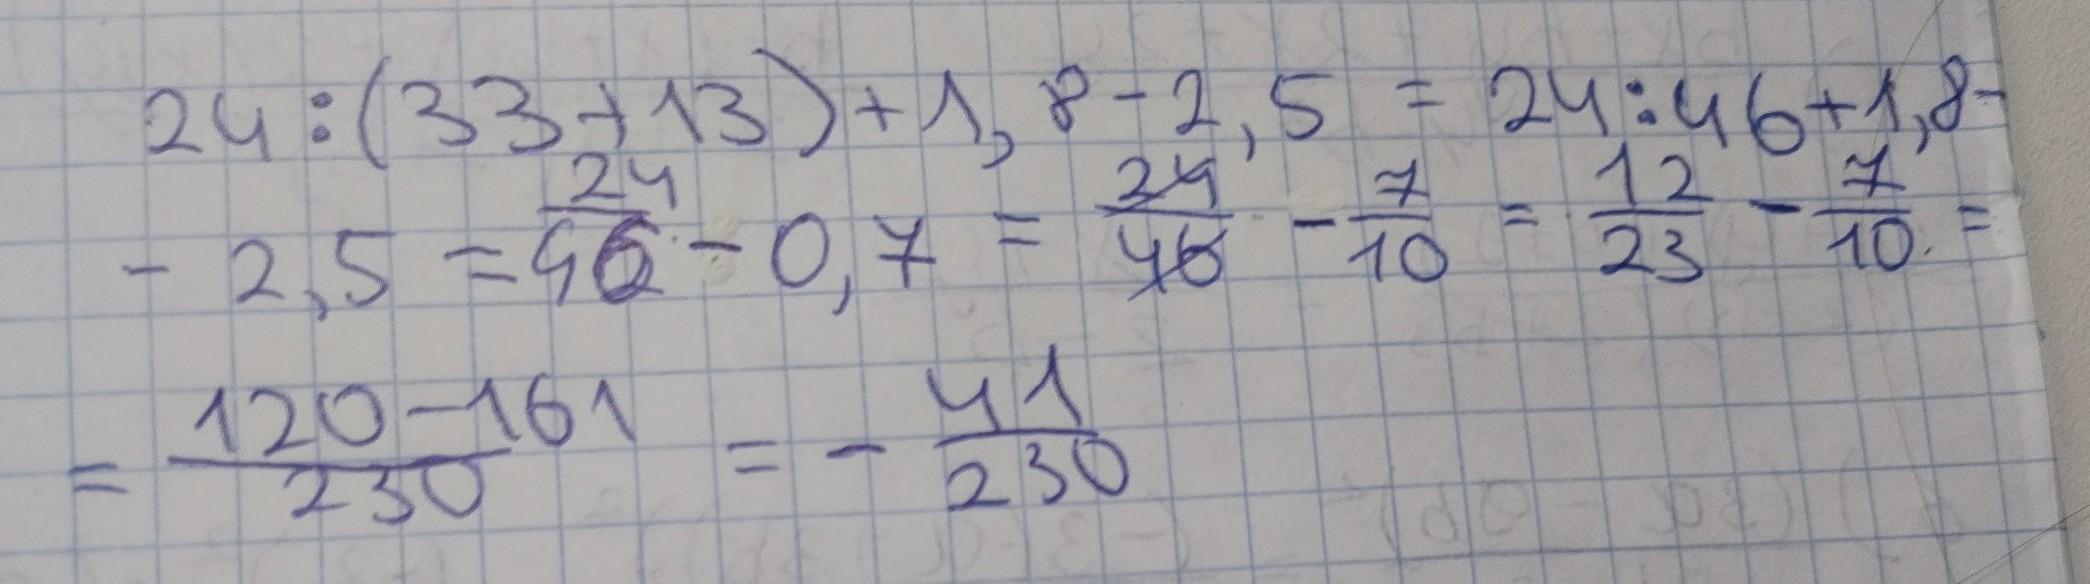 24:(33+13)+1,8-2,5=24:46+1,8-
-2,5=24/46-0,7=24/46-7/10=12/23-7/10=
=120-161/230=-41/230